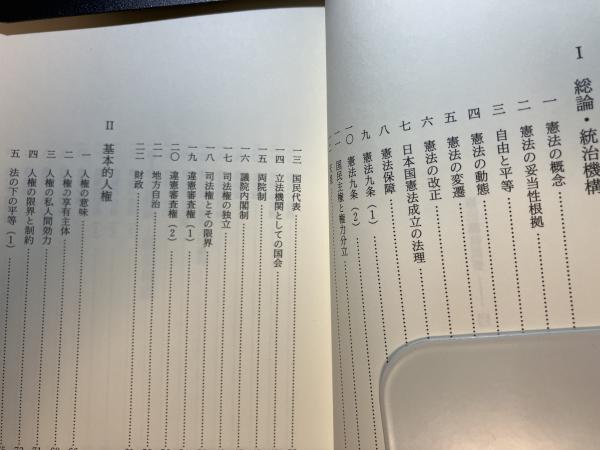 I 総論・統治機構
一 憲法の概念
二 憲法の妥当性根拠
三 自由と平等
四 憲法の動態
五 憲法の変遷
六 憲法の改正
七 日本国憲法成立の法理
八 憲法保障
九 憲法九条(1)
一〇 憲法九条(2)
一一 国民主権と権力分立
一三 国民代表
一四 立法機関としての国会
一五 両院制
一六 議院内閣制
一七 司法権の独立
一八 司法権とその限界
一九 違憲審査権(1)
二〇 違憲審査権(2)
二一 地方自治
二二 財政
II 基本的人権
一 人権の意味
二 人権の享有主体
三 人権の私人間効力
四 人権の限界と制約
五 法の下の平等(1)